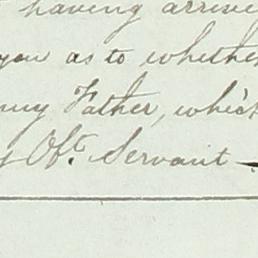 having arrive
you as to whether
my Father, which
Obt. Servant